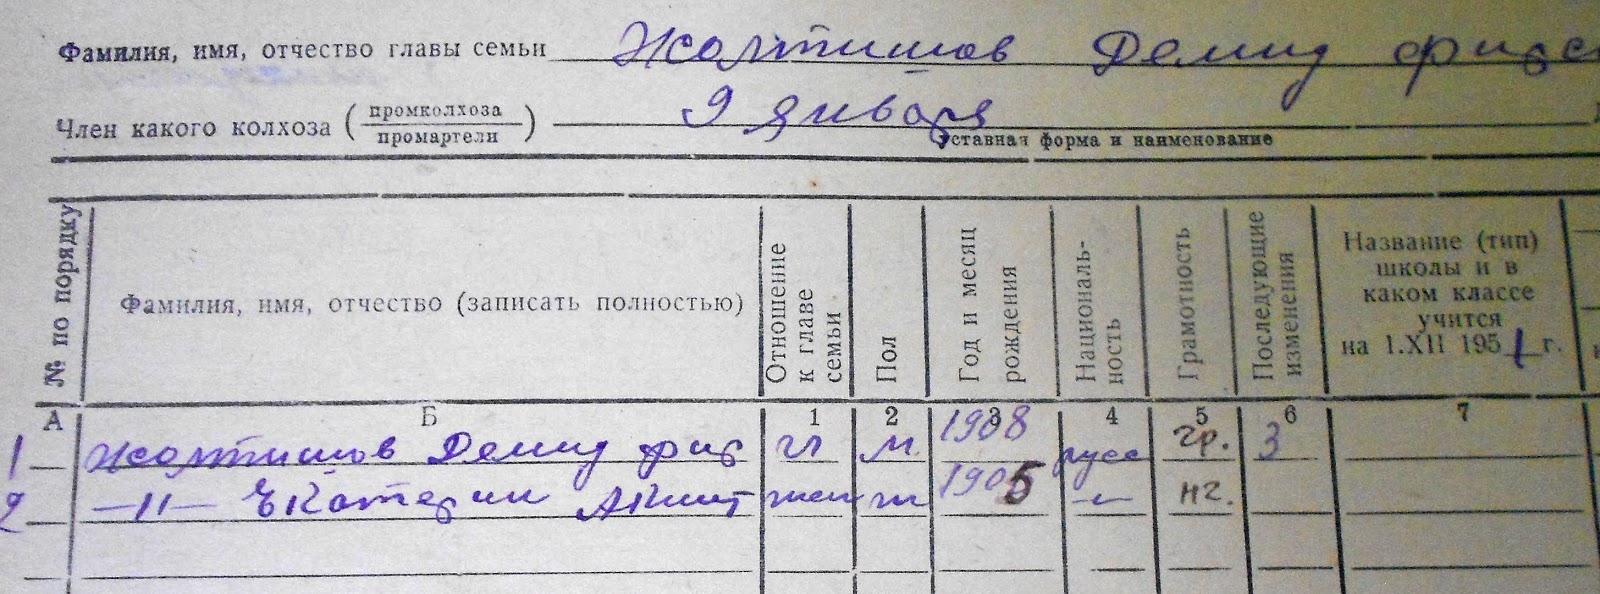 Фамилия, имя, отчество главы семьи Жолтишов Демид фирс
Член какого колхоза (промколхоза / промартели) 9 января
уставная форма и наименование
№ по порядку
Фамилия, имя, отчество (записать полностью)
Отношение к главе семьи
Пол
Год и месяц рождения
Националь-ность
Грамотность
Последующие изменения
Название (тип) школы и в каком классе учится на 1.XII 1951 г.
А Б 1 2 3 4 5 6 7
1 Жолтишов Демид фирс гл м. 1908 русс гр. 3
2 —"— Екатерин жен ж 1905 —"— нг.